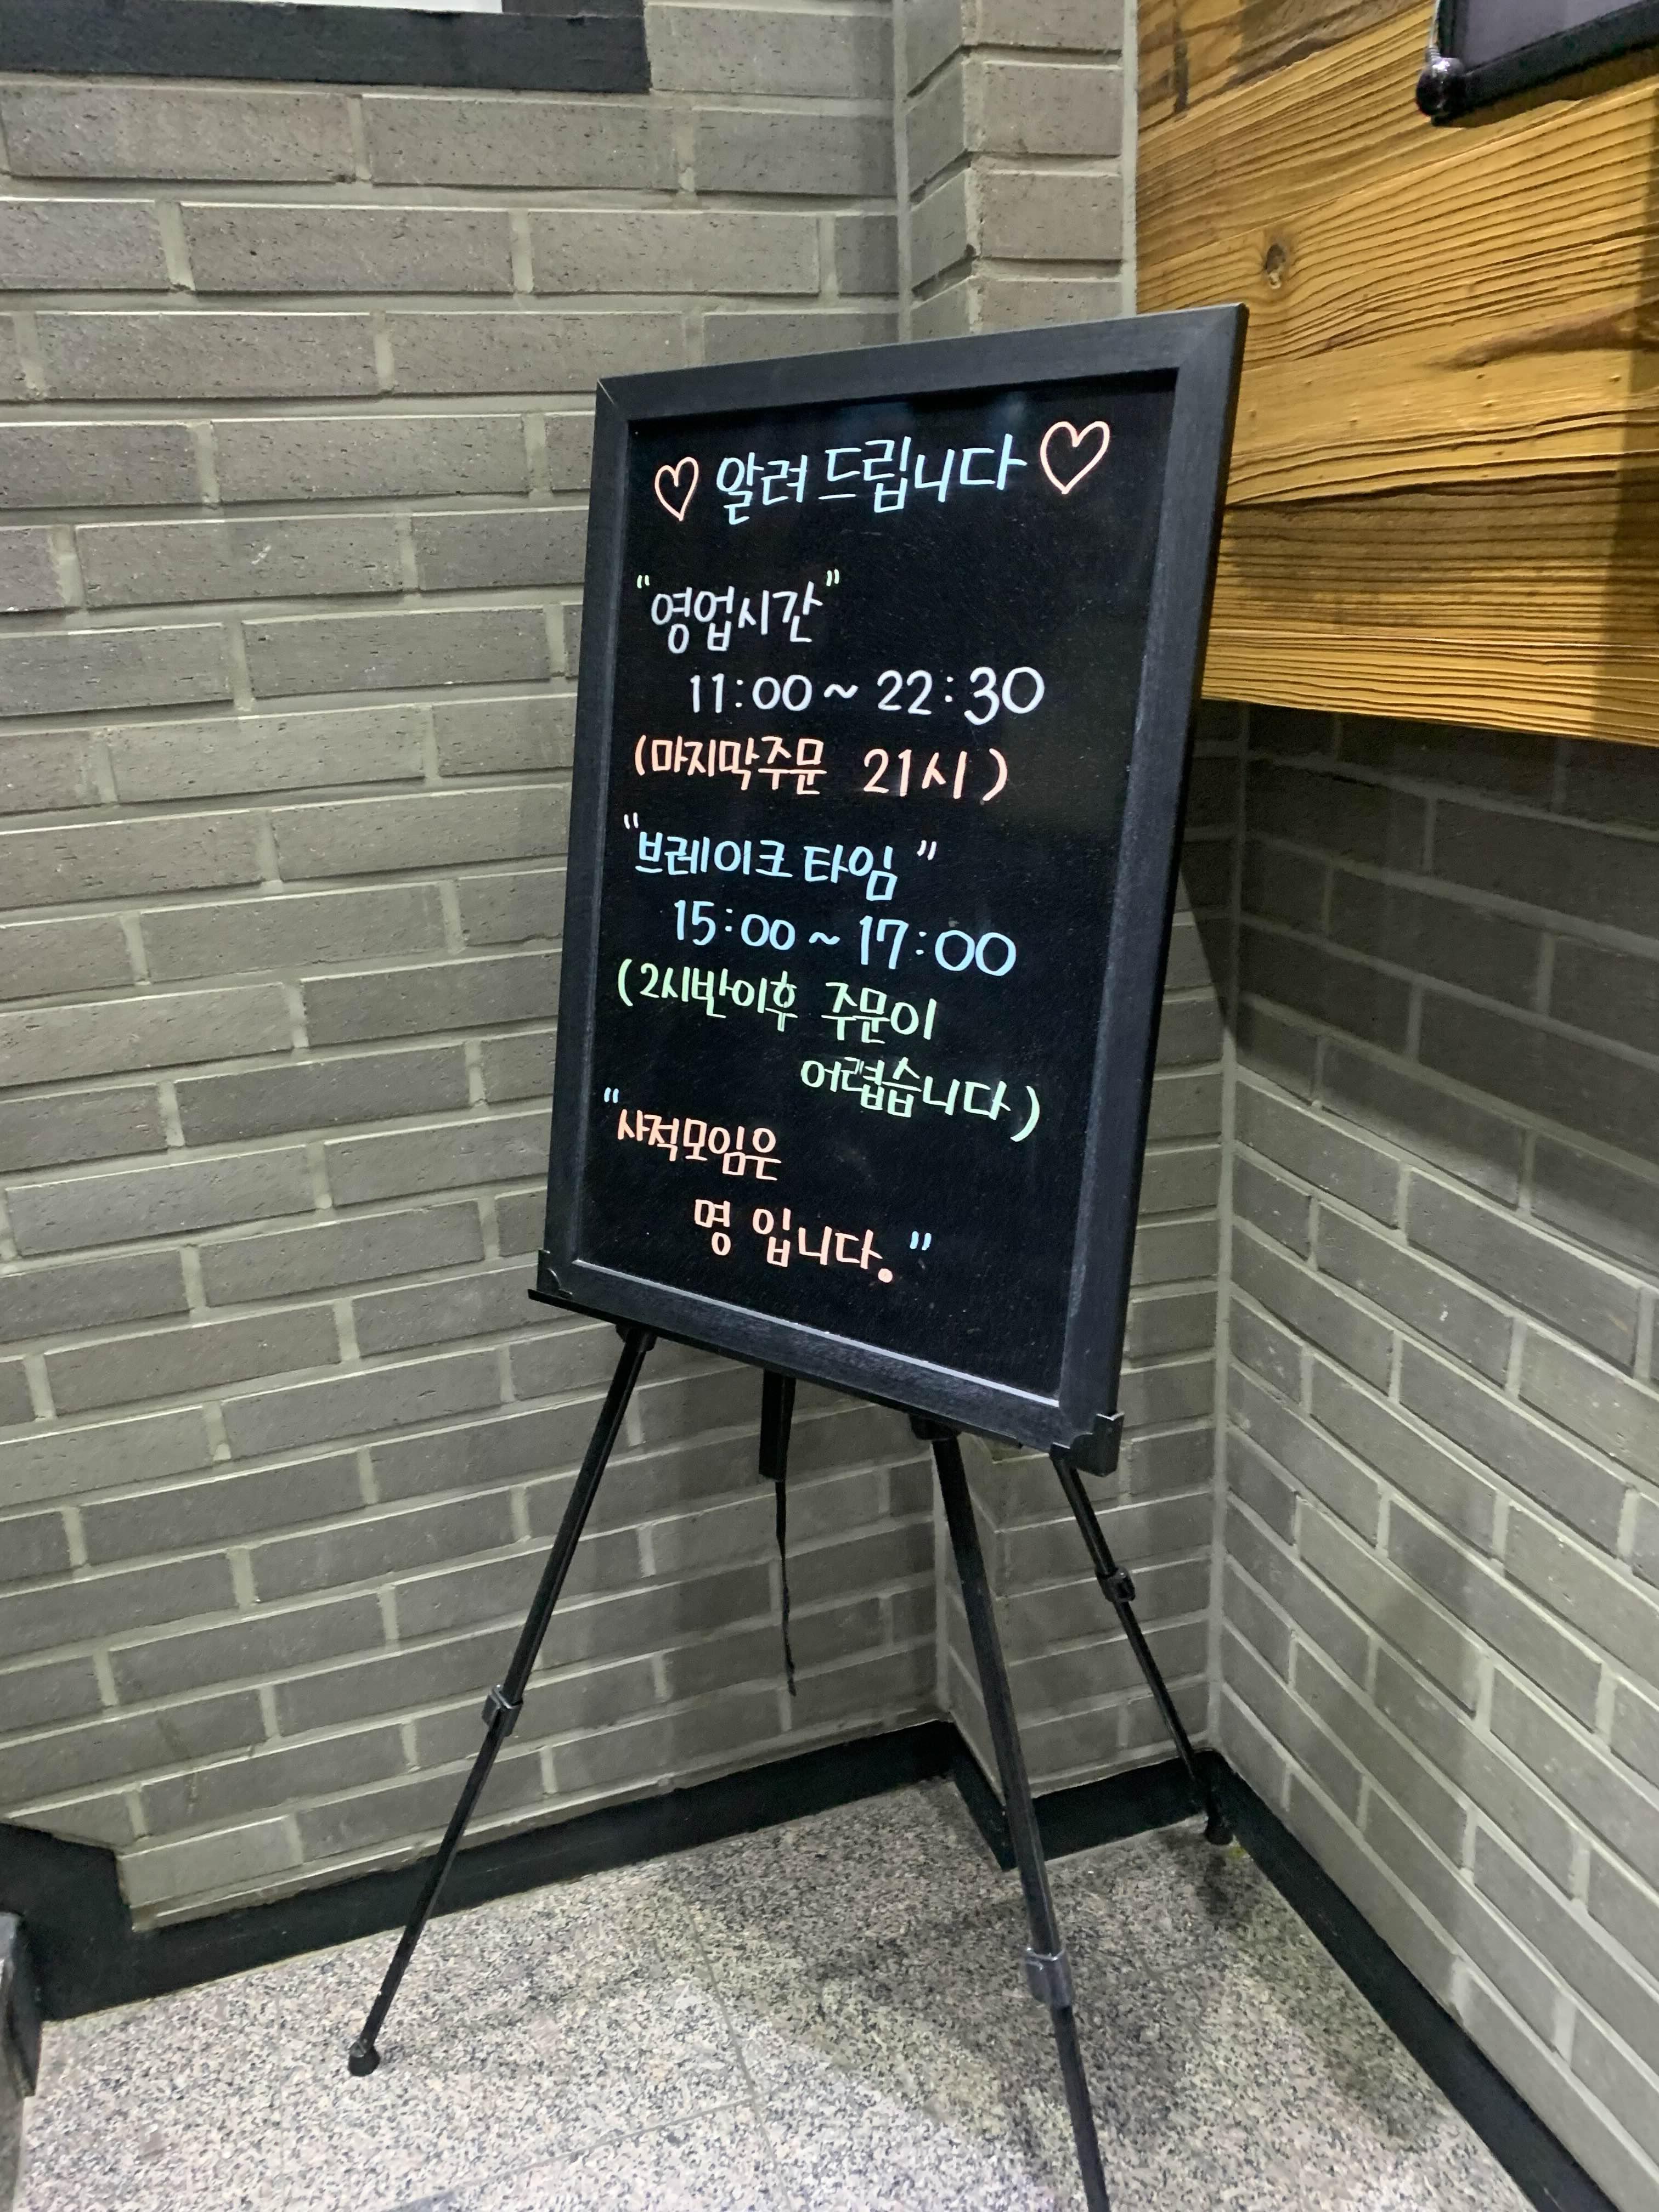 ♡ 알려 드립니다 ♡
"영업시간"
11:00 ~ 22:30
(마지막주문 21시)
"브레이크 타임"
15:00 ~ 17:00
(2시반이후 주문이
어렵습니다)
"사적모임은
명 입니다."